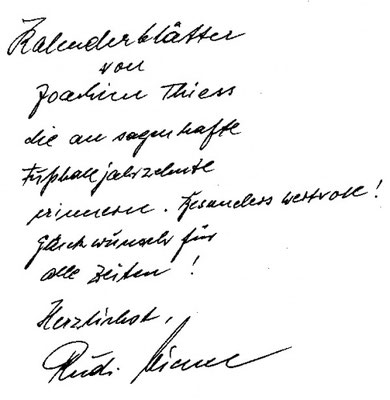 Kalenderblätter
von
Joachim Thiess
die an sagenhafte
Fußballjahrzehnte
erinnern. Besonders wertvoll!
Glückwunsch für
alle Zeiten!
Herzlichst,
Rudi